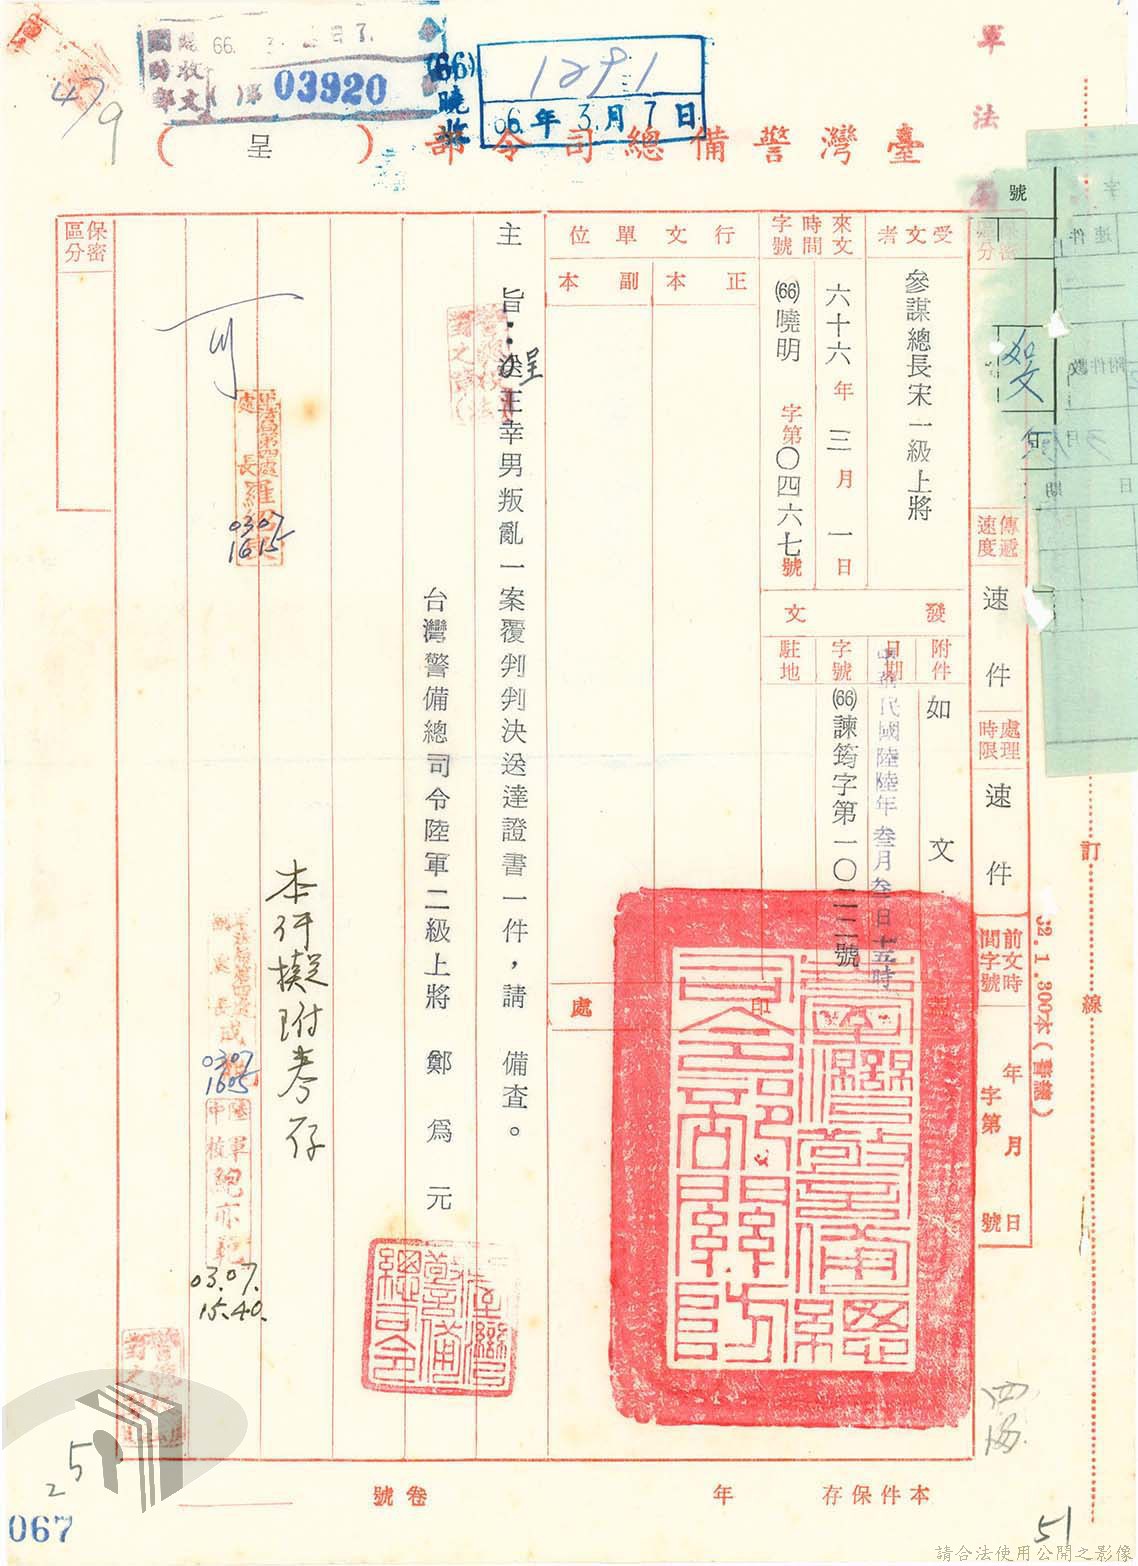 軍法局
66. 3. 7.
收文( )第03920
(66)曉收
1291
66.年3.月7日
47/9
臺灣警備總司令部(呈)
保密區分
號
如文
傳遞速度
速件
處理時限
速件
前文時間字號
年月日
字第號
受文者
參謀總長宋一級上將
來文時間字號
六十六年三月一日
(66)曉明字第〇四六七號
行文單位
正本
副本
發文
附件
如文
日期
中華民國陸陸年叁月叁日十五時
字號
(66)諫筠字第一〇二二號
駐地
印
處
臺灣警備總司令部關防
主旨:呈送王幸男叛亂一案覆判判決送達證書一件,請 備查。
台灣警備總司令陸軍二級上將 鄭為元
臺灣警備總司令
本件擬附卷存
陸軍中校鮑亦
03.07.
15.40.
0307
1605
軍法局第四處處長羅
0307
1615
可
保密區分
訂
線
本件保存年
卷號
25
067
51
請合法使用公開之影像